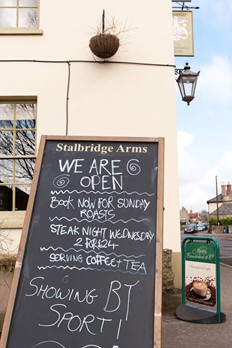 Stalbridge Arms
WE ARE
OPEN
BOOK NOW FOR SUNDAY
ROASTS
STEAK NIGHT WEDNESDAY
2 FOR £24
SERVING COFFEE + TEA
SHOWING BT
SPORT!